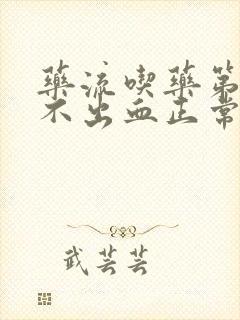 藥流喫藥第
不出血正常
武芸芸